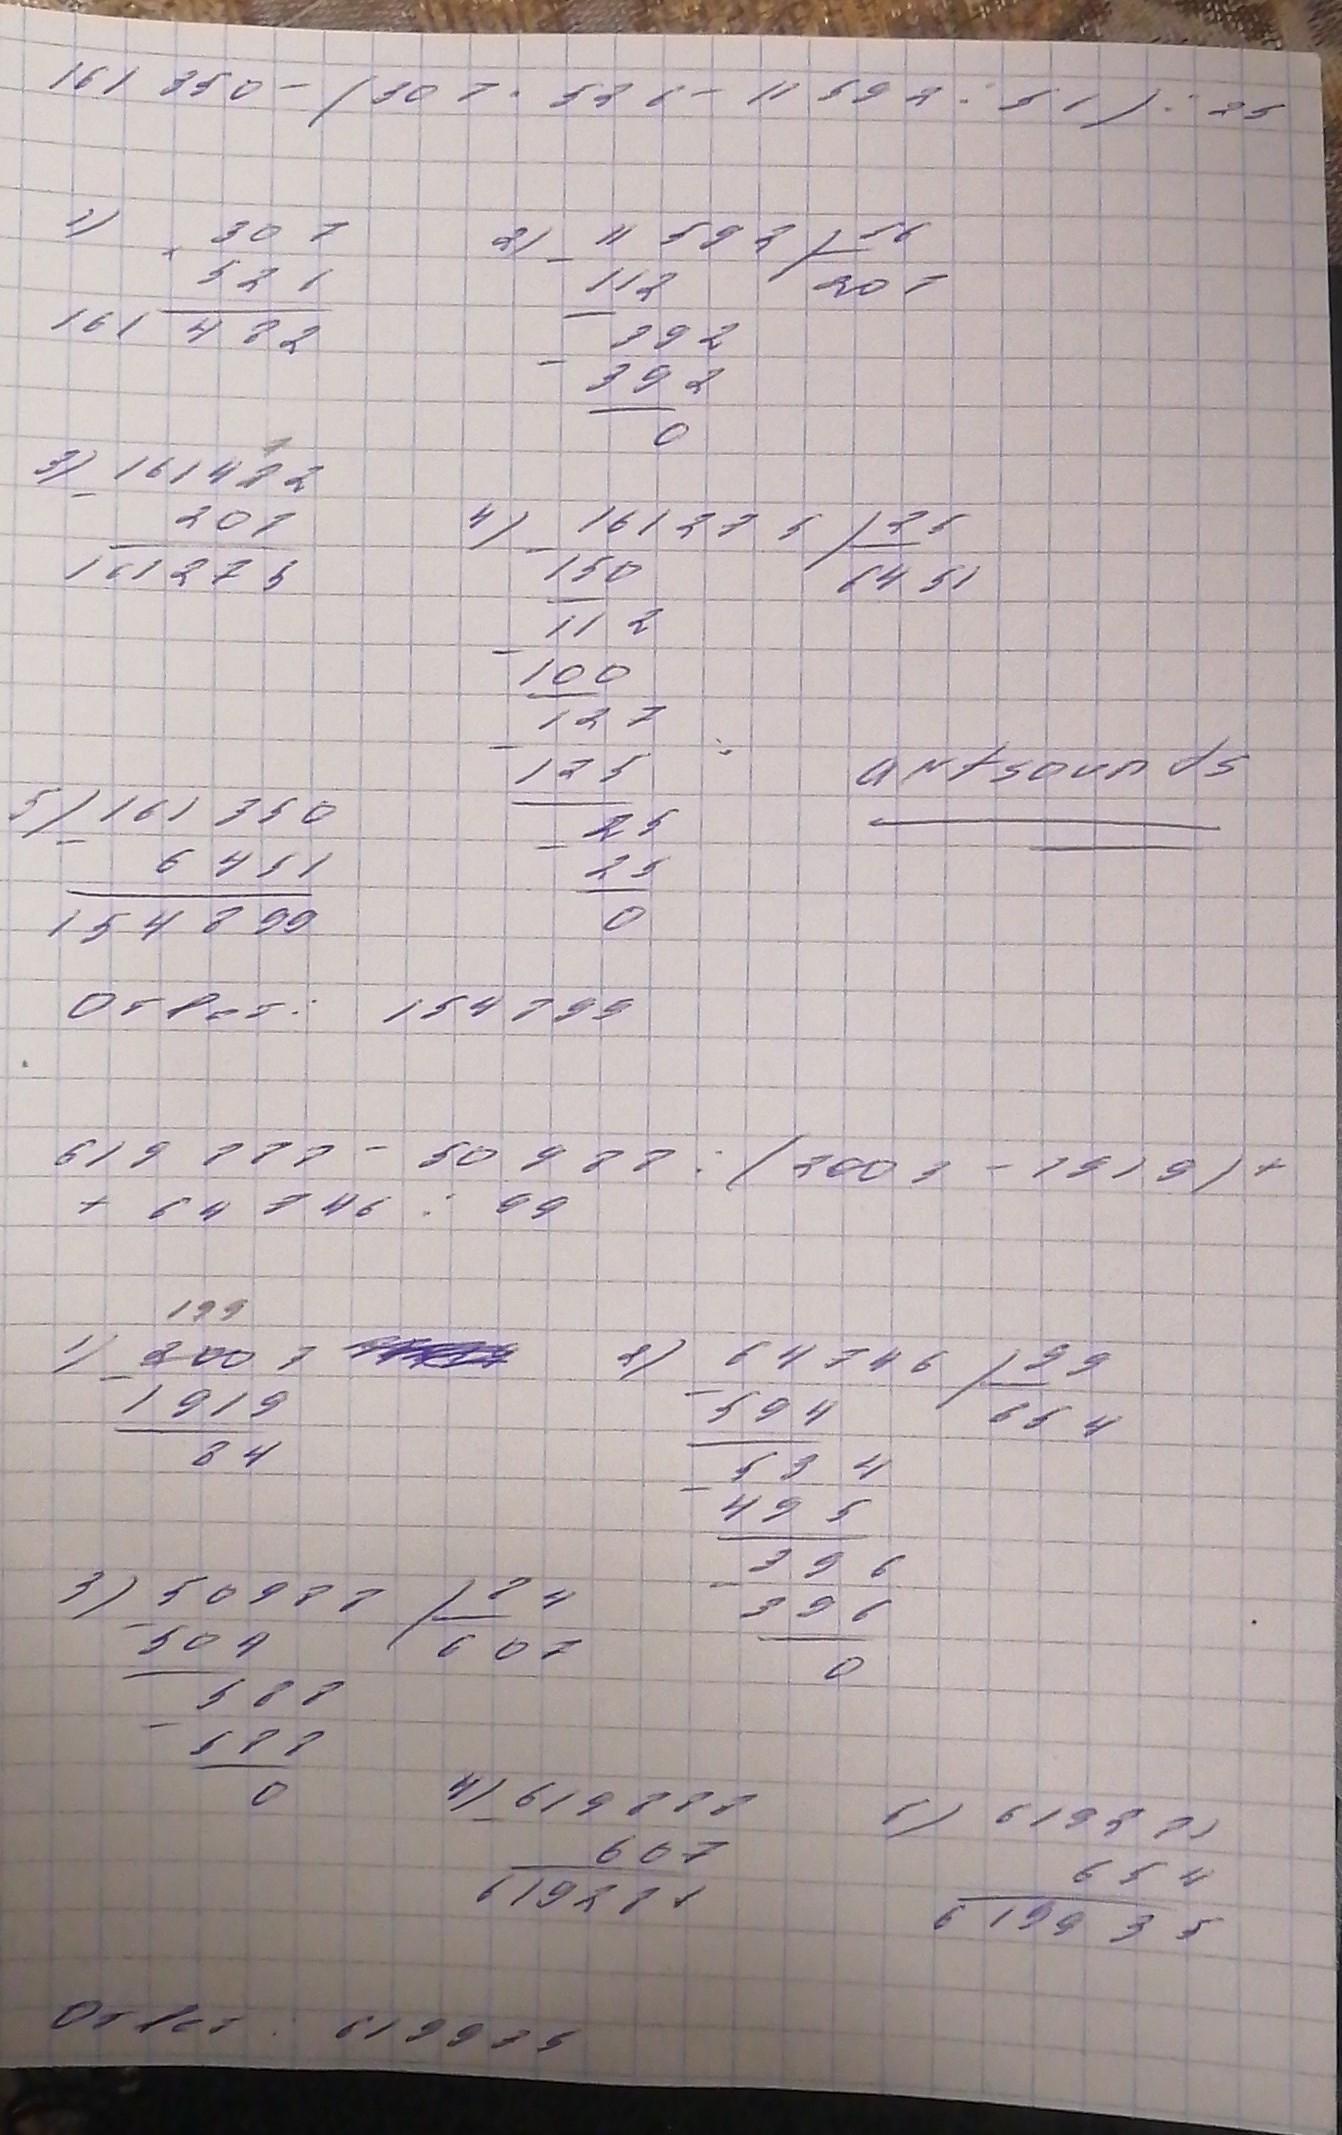 161 350 - (307 · 526 - 11 592 : 56) : 25
1) × 307
526
161 482
2) - 11 592 | 56
112 207
392
- 392
0
3) - 161482
207
161275
4) - 161275 | 25
150 6451
112
- 100
127
- 125
25
- 25
0
artsounds
5) - 161 350
6 451
154 899
Ответ: 154899
619 888 - 50 988 : (2003 - 1919) +
+ 64 746 : 99
199
1) - 2003
1919
84
2) 64746 | 99
- 594 654
534
- 495
396
- 396
0
3) 50988 | 84
- 504 607
588
- 588
0
4) - 619888
607
619281
5) 619281
654
619935
Ответ: 619935